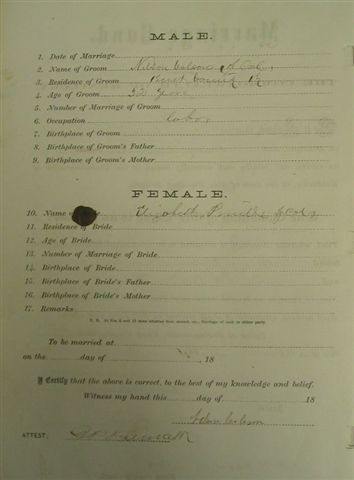 MALE.
1. Date of Marriage
2. Name of Groom Nelson Coleman
3. Residence of Groom County, Ky
4. Age of Groom 22 years
5. Number of Marriage of Groom
6. Occupation Labor
7. Birthplace of Groom
8. Birthplace of Groom's Father
9. Birthplace of Groom's Mother
FEMALE.
10. Name of Elizabeth
11. Residence of Bride
12. Age of Bride
13. Number of Marriage of Bride
14. Birthplace of Bride
15. Birthplace of Bride's Father
16. Birthplace of Bride's Mother
17. Remarks
To be married at
on the day of , 18
I Certify that the above is correct, to the best of my knowledge and belief.
Witness my hand this day of 18
ATTEST: